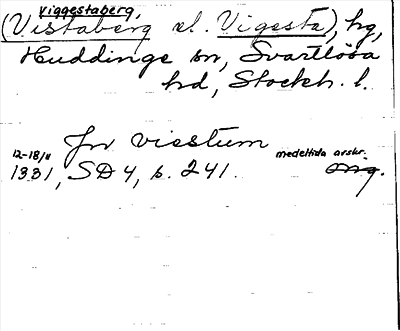 Viggestaberg,
(Vistaberg el. Vigesta), hg,
Huddinge sn, Svartlösa
hd, Stockh. l.
jn visstum
12-18/11 medeltida avskr.
1331, SD 4, s. 241. Orig.